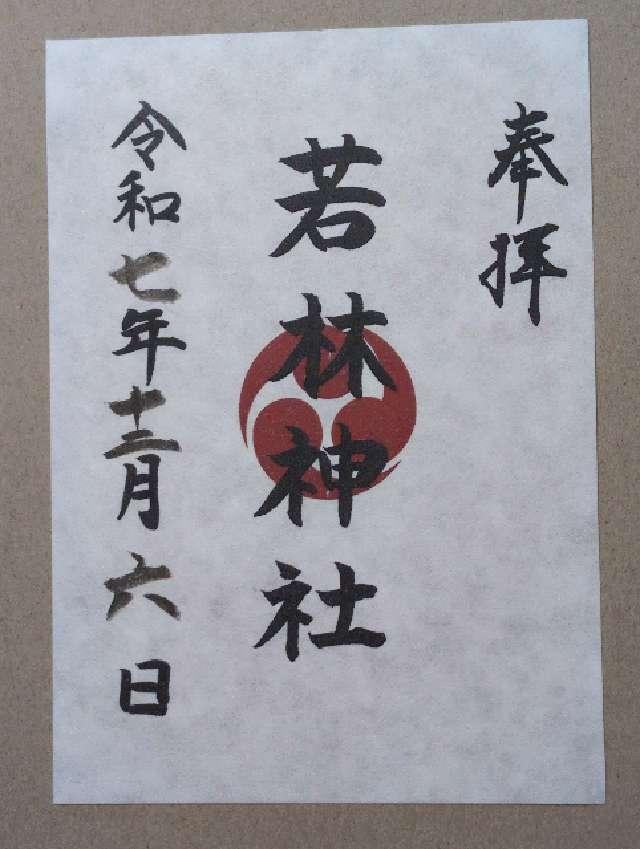 奉拝
若林神社
令和七年十二月六日